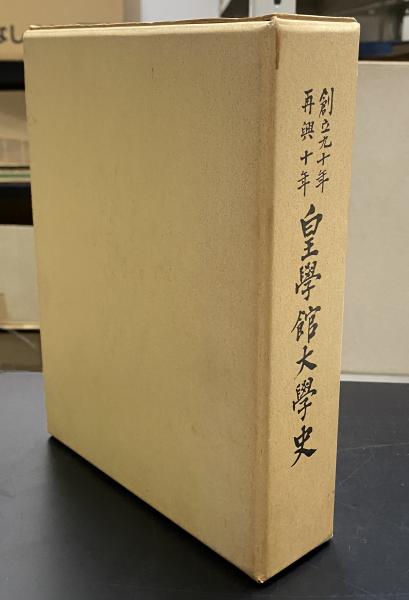 創立九十年
再興十年
皇學館大學史
なし